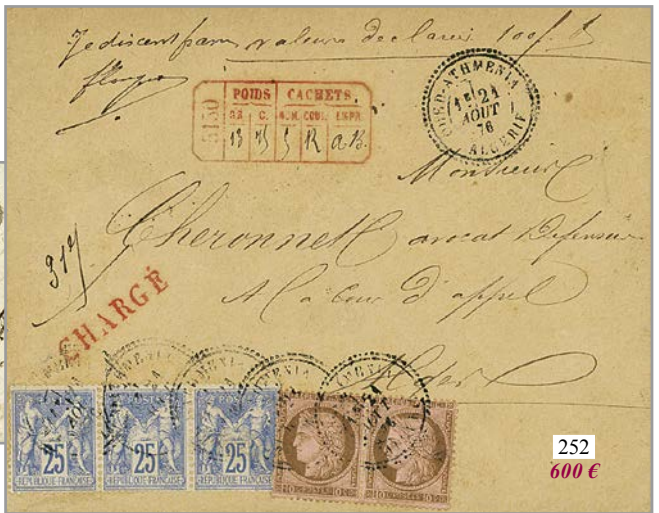 valeur déclarée 100f.
5150
POIDS CACHETS
GR. C. NOM. COUL. EMPR.
13 75 5 R a.B.
OUED-ATHMENIA
1E/ 21
AOUT
76
ALGERIE
Monsieur
Cheronnet avocat Défenseur
A la Cour d'appel
Alger
317
CHARGÉ
POSTE
25
REPUBLIQUE FRANÇAISE
25
REPUBLIQUE FRANÇAISE
25
REPUBLIQUE FRANÇAISE
10 C. POSTES 10 C.
10 C. POSTES 10 C.
252
600 €